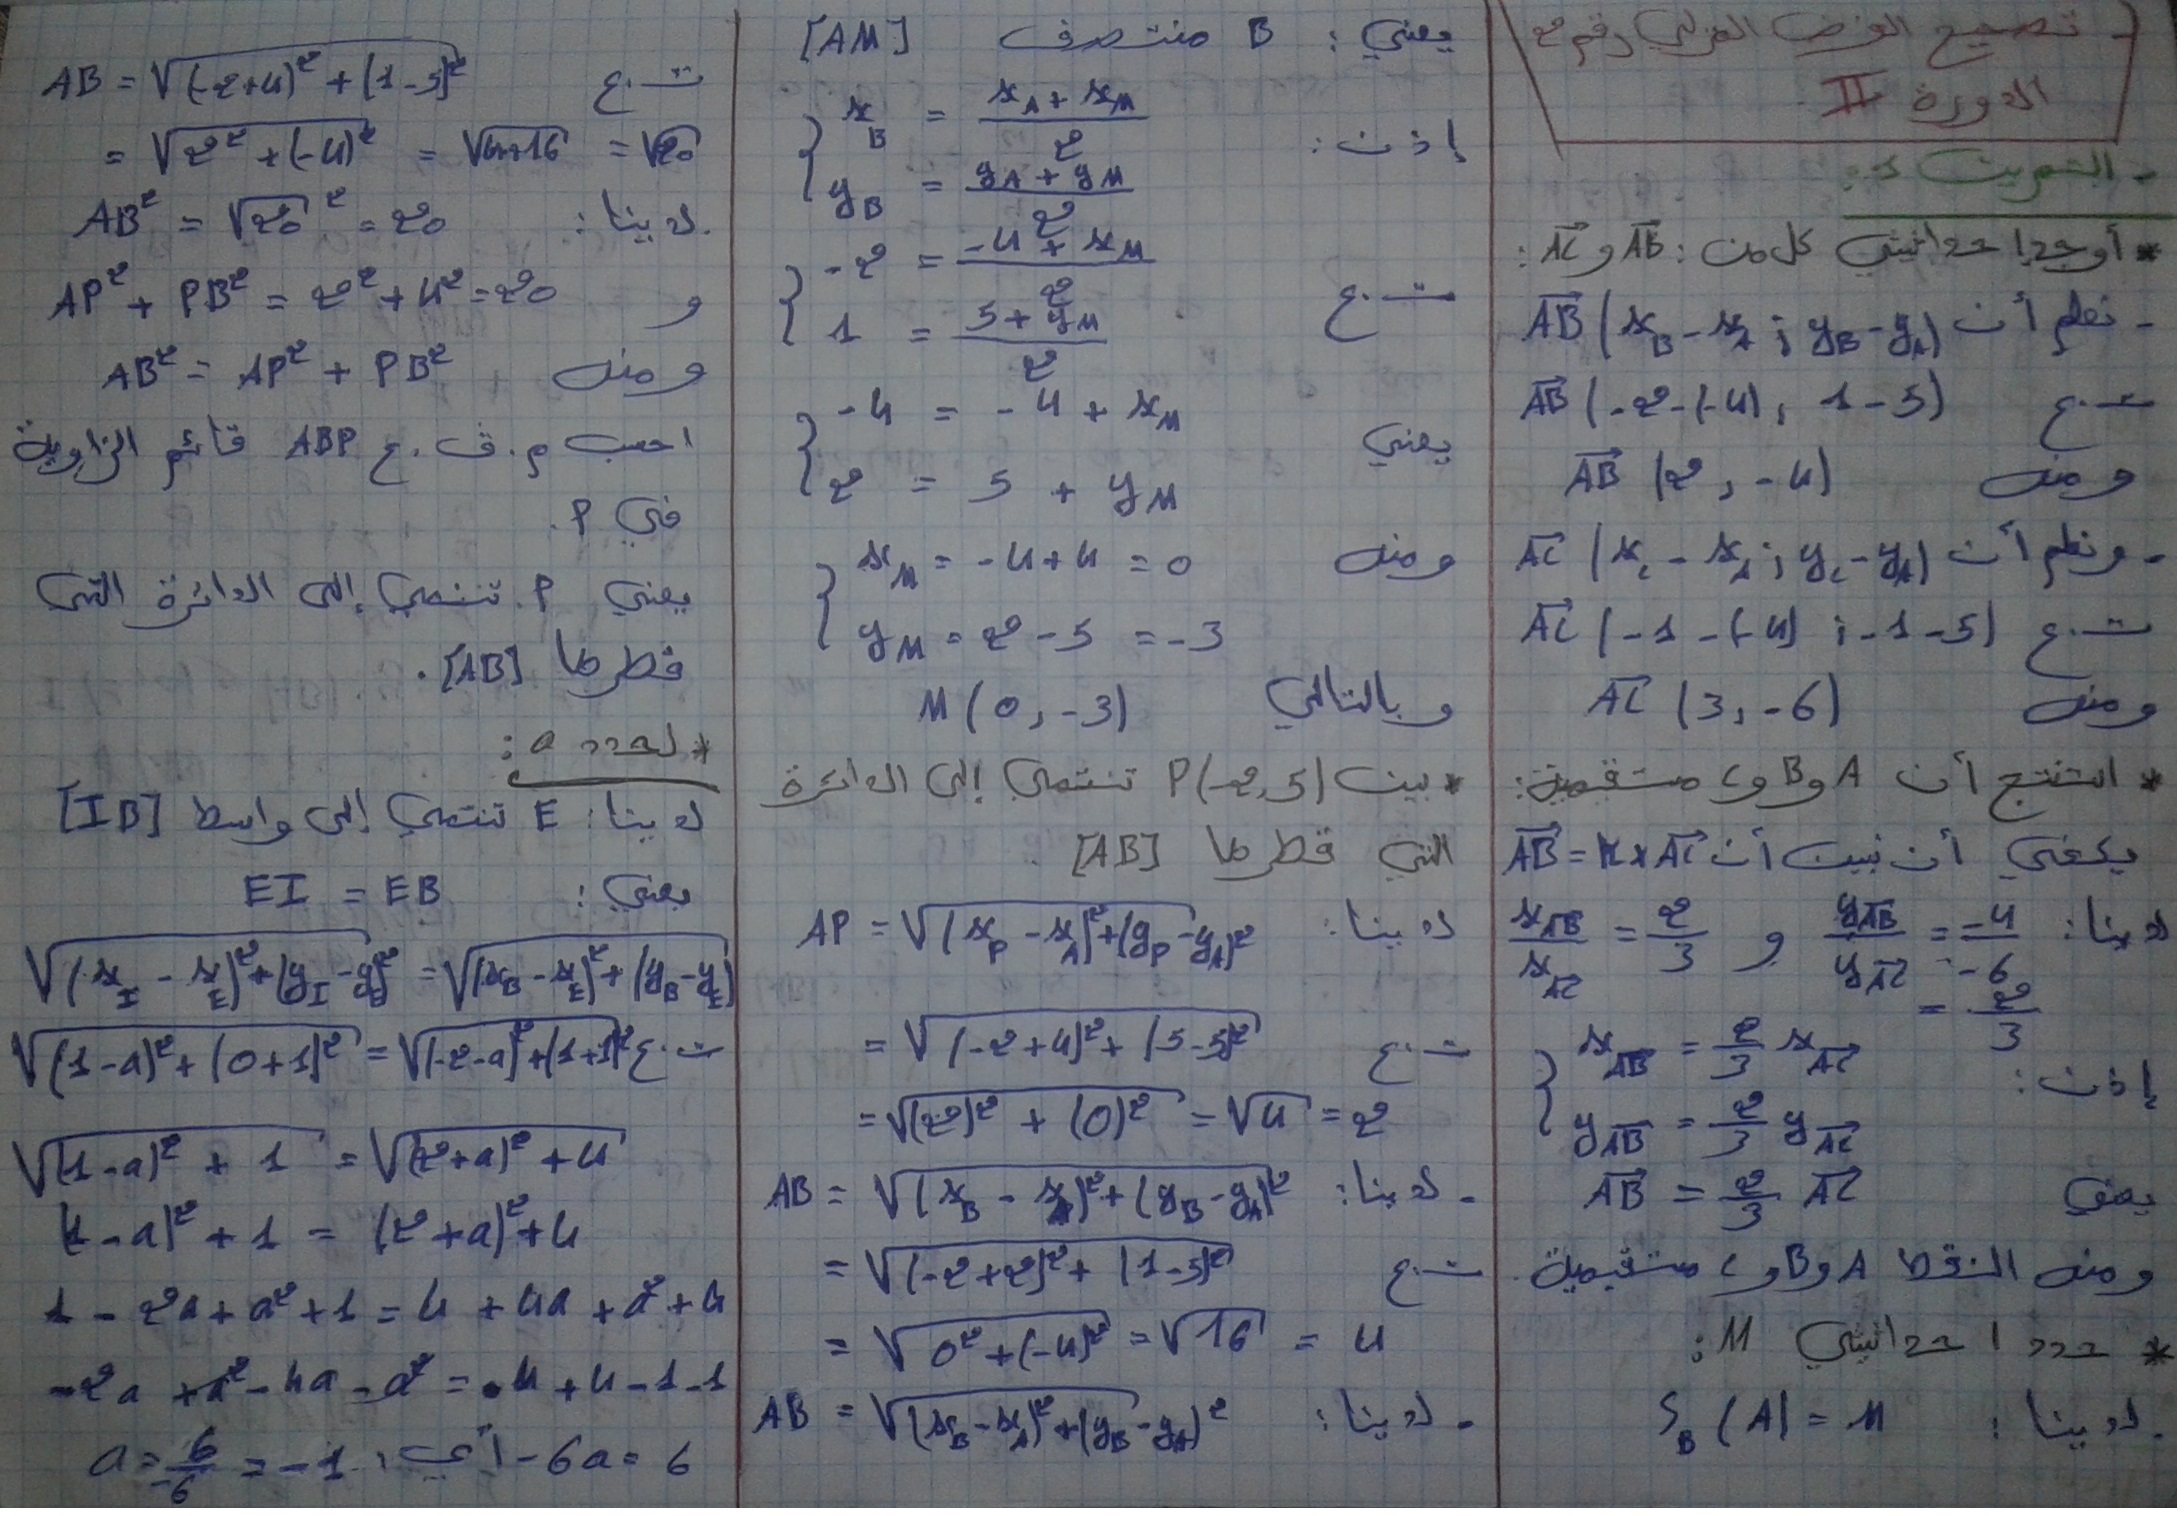 - تصحيح الفرض المنزلي رقم 2
الدورة II
- التمرين 2:
* أوجد إحداثيتي كل من: AB و AC:
- نعلم أن AB (x_B - x_A ; y_B - y_A)
ت.ع AB (-2-(-4), 1-5)
ومنه AB (2, -4)
- ونعلم أن AC (x_C - x_A ; y_C - y_A)
ت.ع AC (-1-(-4) ; -1-5)
ومنه AC (3, -6)
* استنتج أن A و B و C مستقيمية:
يكفي أن نبين أن AB = K x AC
لدينا: x_AB / x_AC = 2/3 و y_AB / y_AC = -4/-6
= 2/3
إذن: { x_AB = 2/3 x_AC
y_AB = 2/3 y_AC
يعني AB = 2/3 AC
ومنه النقط A و B و C مستقيمية.
* حدد احداثيتي M:
. لدينا: S_B (A) = M
يعني: B منتصف [AM]
إذن: { x_B = (x_A + x_M)/2
y_B = (y_A + y_M)/2
ت.ع { -2 = (-4 + x_M)/2
1 = (5 + y_M)/2
يعني { -4 = -4 + x_M
2 = 5 + y_M
ومنه { x_M = -4+4 = 0
y_M = 2-5 = -3
وبالتالي M(0, -3)
* بين P(-2,5) تنتمي إلى الدائرة
التي قطرها [AB].
لدينا: AP = √(x_P - x_A)² + (y_P - y_A)²
ت.ع = √(-2+4)² + (5-5)²
= √(2)² + (0)² = √4 = 2
- لدينا: AB = √(x_B - x_A)² + (y_B - y_A)²
ت.ع = √(-2+2)² + (1-5)²
= √0² + (-4)² = √16 = 4
- لدينا: AB = √(x_B - x_A)² + (y_B - y_A)²
ت.ع AB = √(-2+4)² + (1-5)²
= √2² + (-4)² = √4+16 = √20
.لدينا: AB² = √20² = 20
و AP² + PB² = 2² + 4² = 20
ومنه AB² = AP² + PB²
احسب م.ف.ع ABP قائم الزاوية
في P.
يعني P. تنتمي إلى الدائرة التي
قطرها [AB].
* لحدد a:
لدينا: E تنتمي إلى واسط [IB]
يعني: EI = EB
√(x_I - x_E)² + (y_I - y_E)² = √(x_B - x_E)² + (y_B - y_E)
ت.ع √(1-a)² + (0+1)² = √(-2-a)² + (1+1)²
√(1-a)² + 1 = √(2+a)² + 4
(1-a)² + 1 = (2+a)² + 4
1 - 2a + a² + 1 = 4 + 4a + a² + 4
-2a + a² - 4a - a² = 4 + 4 - 1 - 1
-6a = 6 أي a = 6/-6 = -1